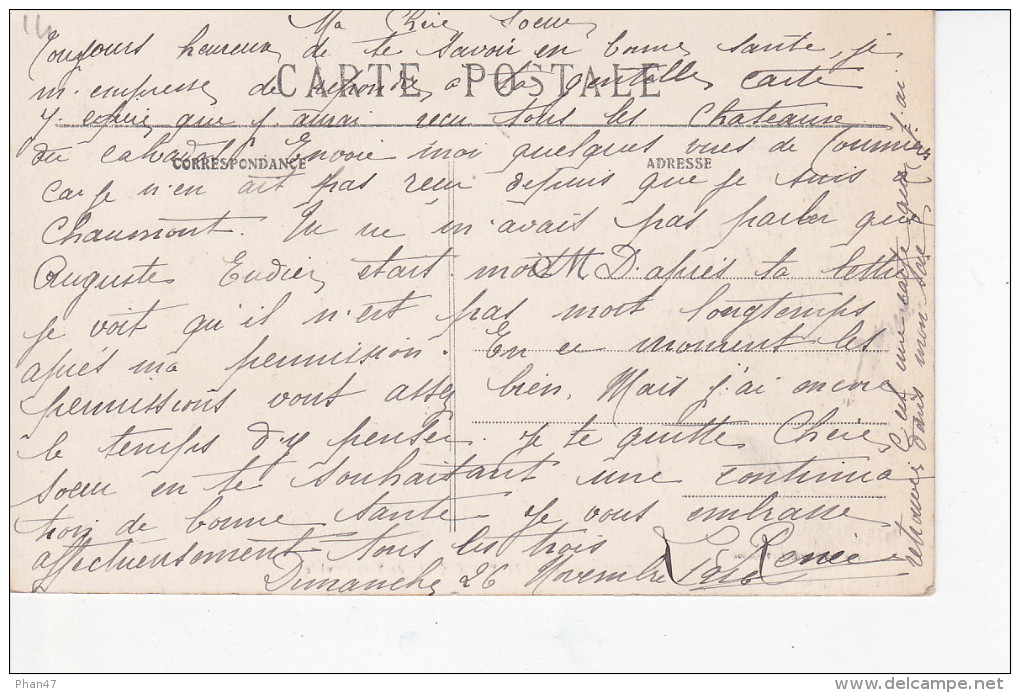 Ma Chère Soeur
Toujours heureux de te savoir en bonne santé, je
CARTE POSTALE
m'empresse de répondre a ta gentille carte
J'espère que j'aurai recu tous les Chateaux
du calvados. Envoie moi quelques vues de
CORRESPONDANCE
ADRESSE
car je n'en ait pas recu depuis que je suis
Chaumont. Tu ne m'avais pas parler que
Auguste Eudier etait mort D'après ta lettre
je voit qu'il n'est pas mort longtemps
après ma permission. En ce moment les
permissions vont assez bien. Mais j'ai encore
le temps d'y penser. Je te quitte Chère
Soeur en te souhaitant une continua
tion de bonne santé Je vous embrasse
affectueusement tous les trois
Dimanche 26 Novembre 1916
C'est une carte que j'ai
retrouvée dans mon sac
Phan47
www.delcampe.net